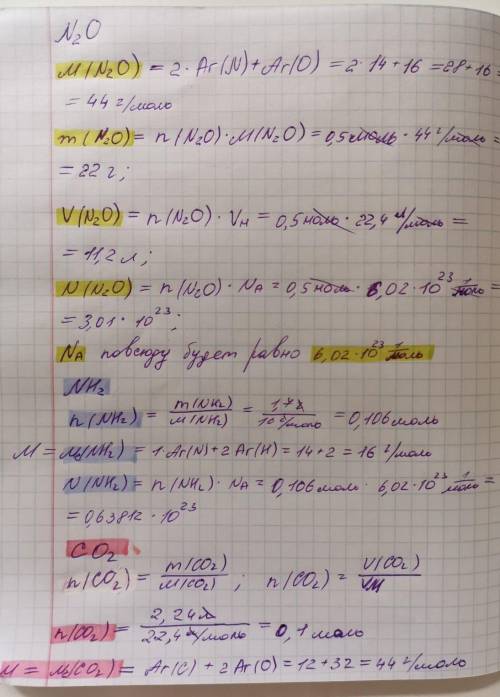 N₂O
M(N₂O) = 2·Ar(N)+Ar(O) = 2·14+16 =28+16=
= 44 г/моль
m(N₂O) = n(N₂O)·M(N₂O) = 0,5 моль · 44 г/моль =
= 22 г;
V(N₂O) = n(N₂O)·Vн = 0,5 моль · 22,4 л/моль =
= 11,2 л;
N(N₂O) = n(N₂O)·NA = 0,5 моль · 6,02·10²³ 1/моль =
= 3,01·10²³;
NA повсюду будет равно 6,02·10²³ 1/моль
NH₂
n(NH₂) = m(NH₂)/M(NH₂) = 1,7г/16 г/моль = 0,106 моль
M = (NH₂) = 1·Ar(N)+2Ar(H) = 14+2 = 16 г/моль
N(NH₂) = n(NH₂)·NA = 0,106 моль · 6,02·10²³ 1/моль =
= 0,63812·10²³
CO₂
n(CO₂) = m(CO₂)/M(CO₂) ; n(CO₂) = V(CO₂)/VM
n(CO₂) = 2,24л/22,4 л/моль = 0,1 моль
M = (CO₂) = Ar(C) + 2Ar(O) = 12+32 = 44 г/моль